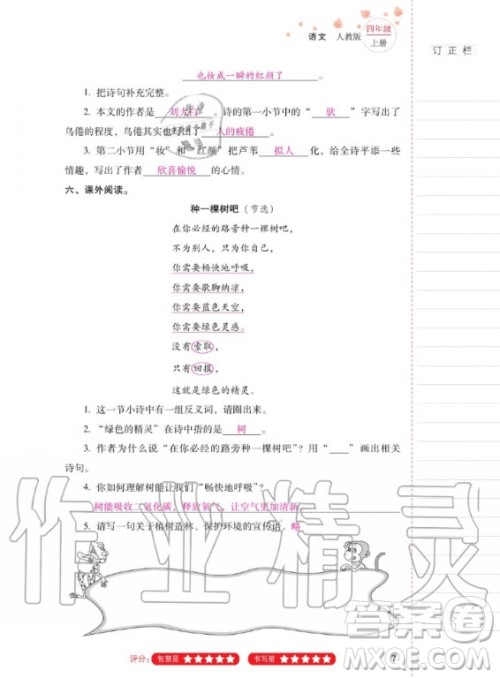 语文 人教版 四年级
上册
订正栏
也妆成一瞬的红颜了。
1. 把诗句补充完整。
2. 本文的作者是 刘大白 。诗的第一小节中的“ 驮 ”字写出了
鸟倦的程度，鸟倦其实写出了 人的疲倦 。
3. 第二小节用“妆”和“红颜”把芦苇 拟人 化，给全诗平添一些
情趣，写出了作者 欣喜愉悦 的心情。
六、课外阅读。
种一棵树吧（节选）
在你必经的路旁种一棵树吧，
不为别人，只为你自己，
你需要畅快地呼吸，
你需要歇脚的凉，
你需要蓝色天空，
你需要绿色灵感。
没有索取，
只有回报，
这就是绿色的精灵。
1. 这一节小诗中有一组反义词，请圈出来。
2. “绿色的精灵”在诗中指的是 树 。
3. 作者为什么说“在你必经的路旁种一棵树吧”？用“___”画出相关
诗句。
4. 你如何理解树能让我们“畅快地呼吸”？
树能吸收二氧化碳，释放氧气，让空气更加清新。
5. 请写一句关于植树造林、保护环境的宣传语。略
作业精灵
评分： 智慧星 ★★★★★ 书写星 ★★★★★
7
答案圈
MXQE.COM